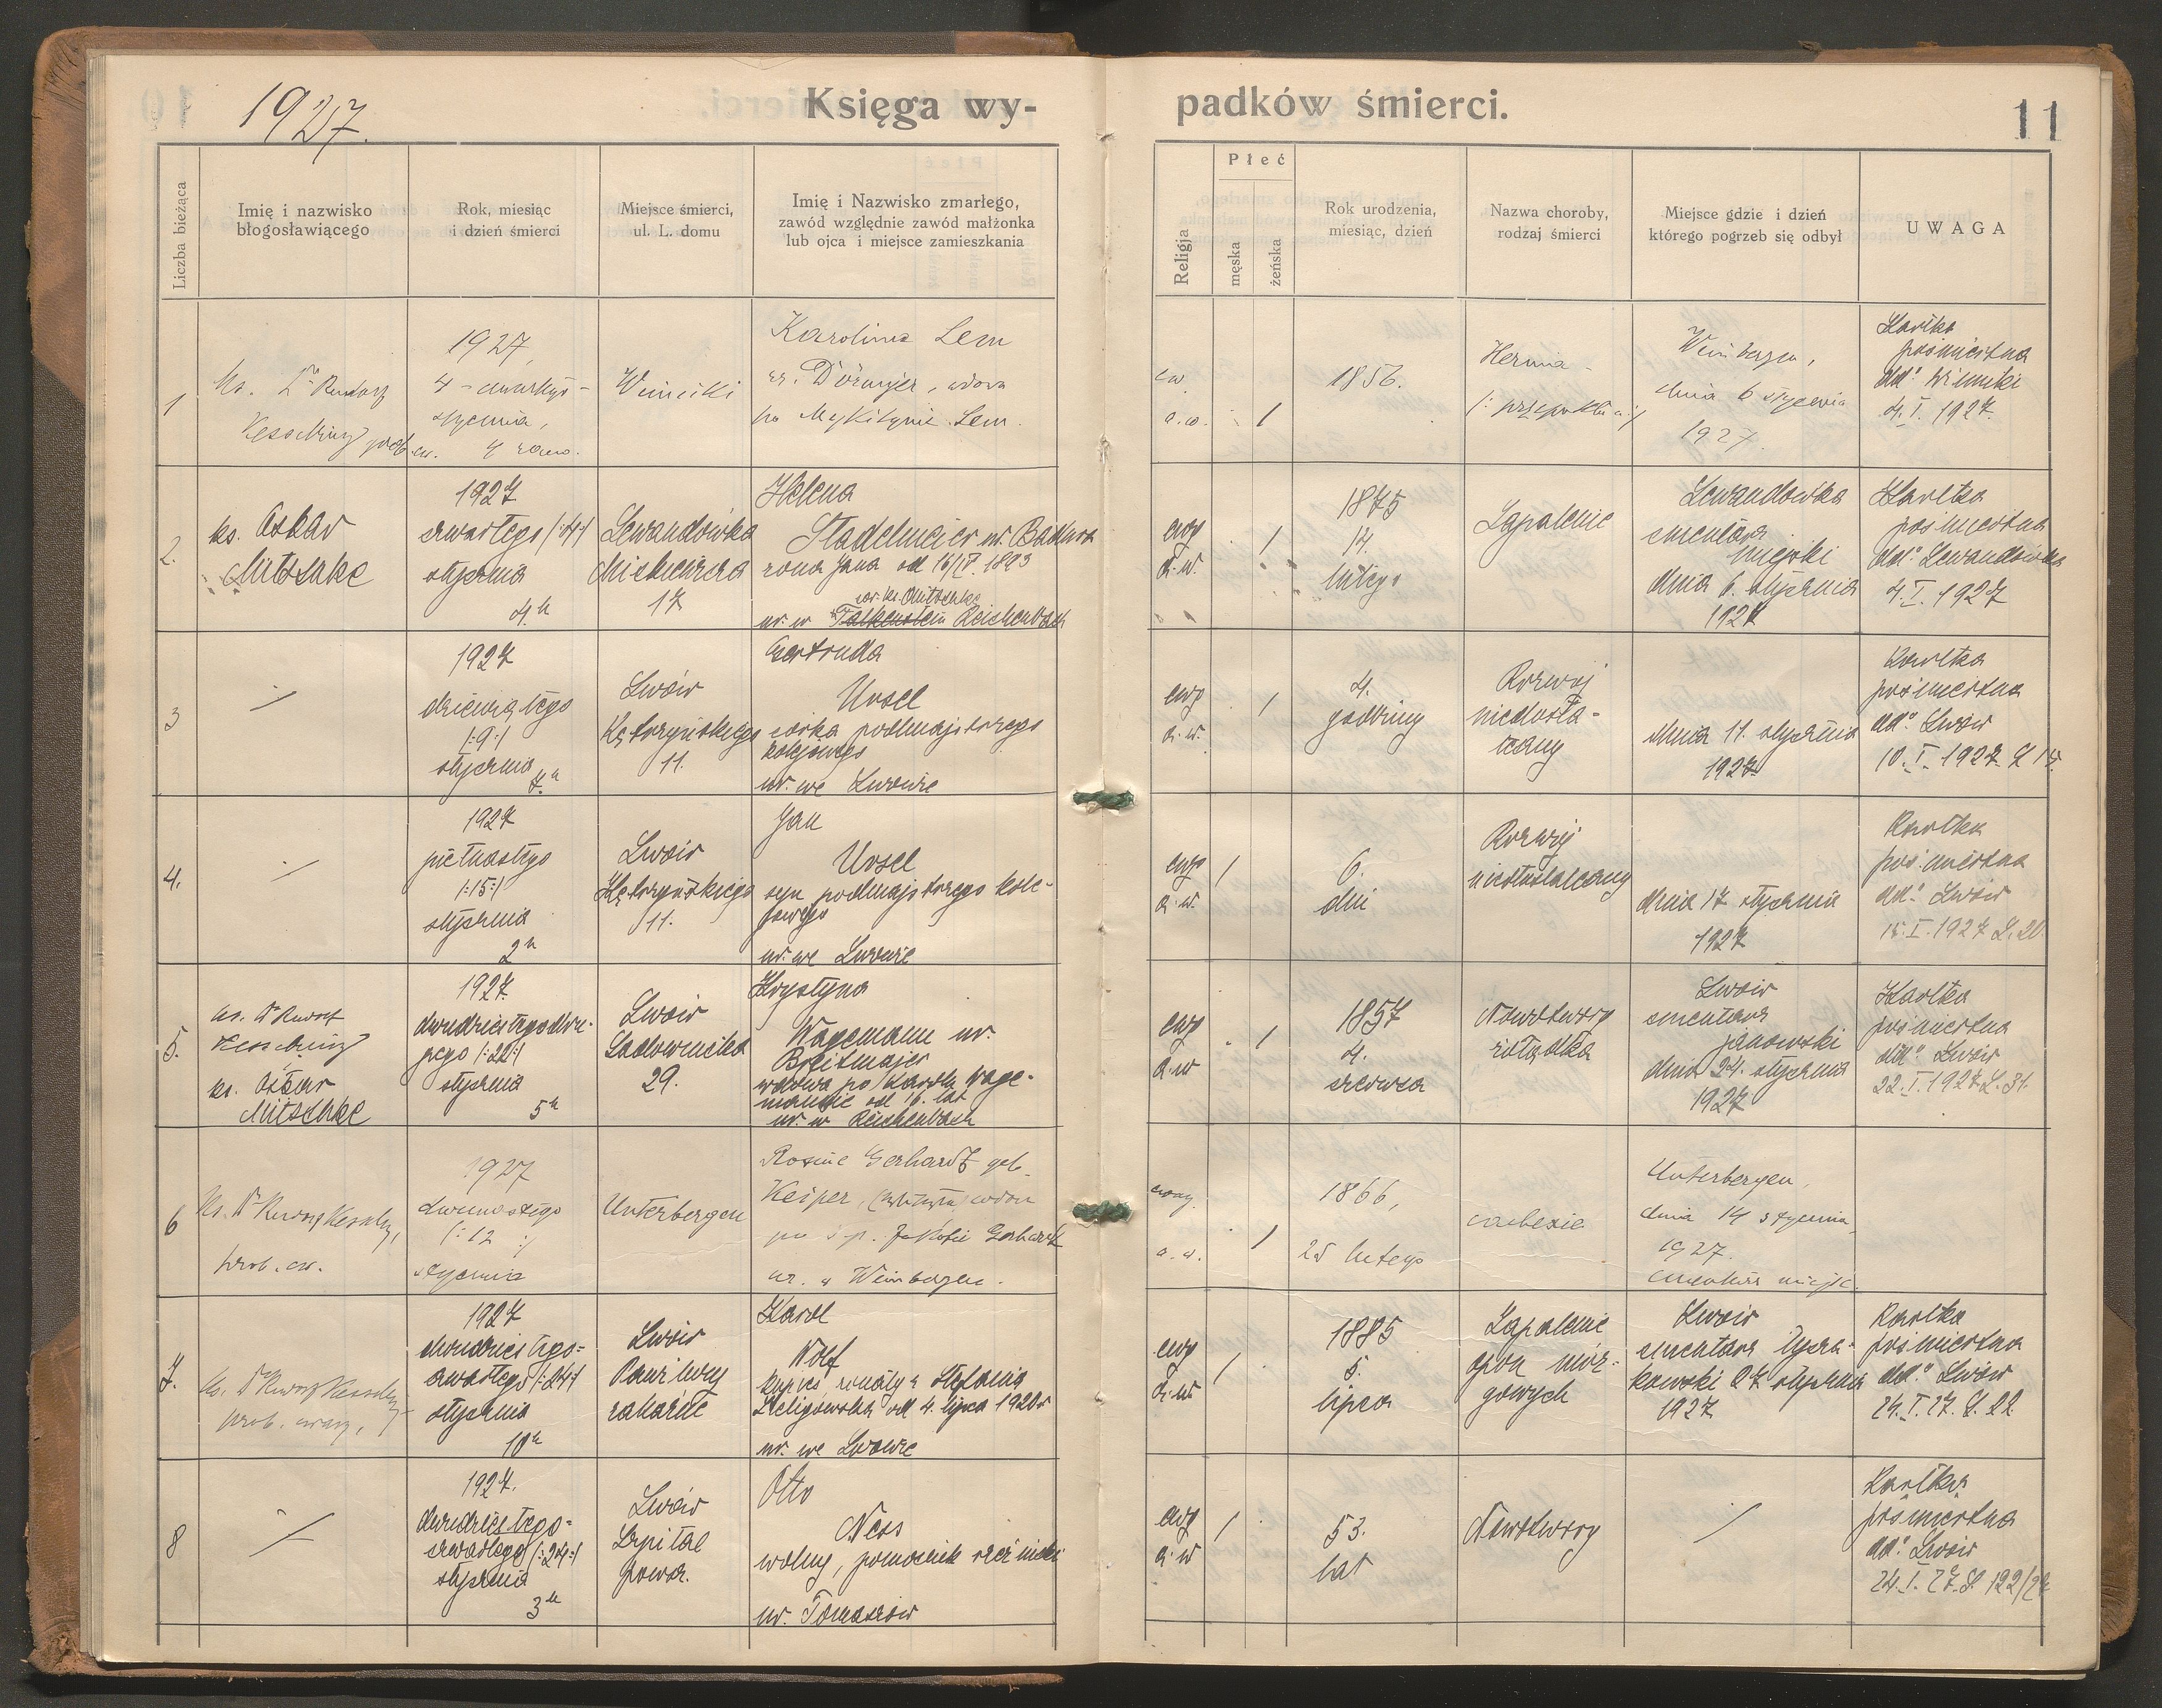 1927.
Księga wy-
padków śmierci.
11
Liczba bieżąca
Imię i nazwisko
błogosławiącego
Rok, miesiąc
i dzień śmierci
Miejsce śmierci,
ul. L. domu
Imię i Nazwisko zmarłego,
zawód względnie zawód małżonka
lub ojca i miejsce zamieszkania
Religja
Płeć
męska
żeńska
Rok urodzenia,
miesiąc, dzień
Nazwa choroby,
rodzaj śmierci
Miejsce gdzie i dzień
którego pogrzeb się odbył
UWAGA
1
Ks. Dr Rudolf
Kesselring prob. ew.
1927,
4 -
stycznia,
4 rano.
Winniki
Karolina Lem
ur. Dörmajer, wdowa
po Lem.
ew.
a.w.
1
1856.
Hernia
/: przepuklina :/
Weinbergen,
dnia 6 stycznia
1927.
Kartka
pośmiertna
dd: Winniki
4. I. 1927.
2.
ks. Oskar
Mitschke
1927
czwartego /:4:/
stycznia
4h
Lewandówka
Mickiewicza
17
Helena
Stadelmeier ur.
żona Jana od 16/IV. 1893
ks. Mitschke
ur. w Falkenstein Reichenbach
ewg
a.w.
1
1875
14.
lutego
Zapalenie
Lewandówka
cmentarz
miejski
dnia 6. stycznia
1927
Kartka
pośmiertna
dd: Lewandówka
4. I. 1927
3
/
1927
dziewiątego
/:9:/
stycznia
7h
Lwów
Kętrzyńskiego
11.
Gertruda
Ursel
córka podmajstrzego
kolejowego
ur. we Lwowie
ewg
a.w.
1
4.
godziny
Rozwój
niedosta-
teczny
dnia 11. stycznia
1927.
Kartka
pośmiertna
dd: Lwów
10. I. 1927. L 15.
4.
/
1927
piętnastego
/:15:/
stycznia
2h
Lwów
Kętrzyńskiego
11.
Jan
Ursel
syn podmajstrzego kole-
jowego
ur. we Lwowie
ewg
a.w.
1
6.
dni
Rozwój
niedostateczny
dnia 17 stycznia
1927
Kartka
pośmiertna
dd: Lwów
15. I. 1927 L. 20.
5.
ks. Dr Rudolf
Kesselring
ks. Oskar
Mitschke
1927.
dwudziestegodru-
giego /:22:/
stycznia
5h
Lwów
Sadownicka
29.
Krystyna
Wagemann ur.
Breitmajer
wdowa po Karolu Wage-
mannie od 16. lat
ur. w Reichenbach
ewg
a.w
1
1857
4.
czerwca
Nowotwory
żołądka
Lwów
cmentarz
janowski
dnia 24. stycznia
1927
Kartka
pośmiertna
dd: Lwów
22. I. 1927. L. 31.
6
Ks. Dr Rudolf Kesselring,
prob. ew.
1927
dwunastego
/: 12 :/
stycznia
Unterbergen
Rosine Gerhardt geb.
Keiper, wdowa
po ś.p. Jakobie Gerhardt
ur. w Weinbergen.
ewang.
a. w.
1
1866,
25 lutego
Unterbergen,
dnia 14 stycznia,
1927.
cmentarz miejsc.
7.
Ks. Dr Rudolf Kesselring
prob. ewang.,
1927
dwudziestego-
czwartego /:24:/
stycznia
10h
Lwów
Pawilony
zakaźne
Karol
Wolf
kupiec, żonaty z Stefanią
Żeligowską od 4. lipca 1920r
ur. we Lwowie
ewg
a.w.
1
1885
5.
lipca
Zapalenie
opon móz-
gowych
Lwów
cmentarz łycza-
kowski 27 stycznia
1927
Kartka
pośmiertna
dd: Lwów
24. I. 27. L. 22
8
/
1927.
dwudziestego-
czwartego /:24:/
stycznia
3h
Lwów
Szpital
powsz.
Otto
Ness
wolny, pomocnik rzeźnicki
ur. Tomaszów
ewg
a.w
1
53.
lat
Nowotwory
/
Kartka
pośmiertna
dd: Lwów
24. I. 27. L. 122/